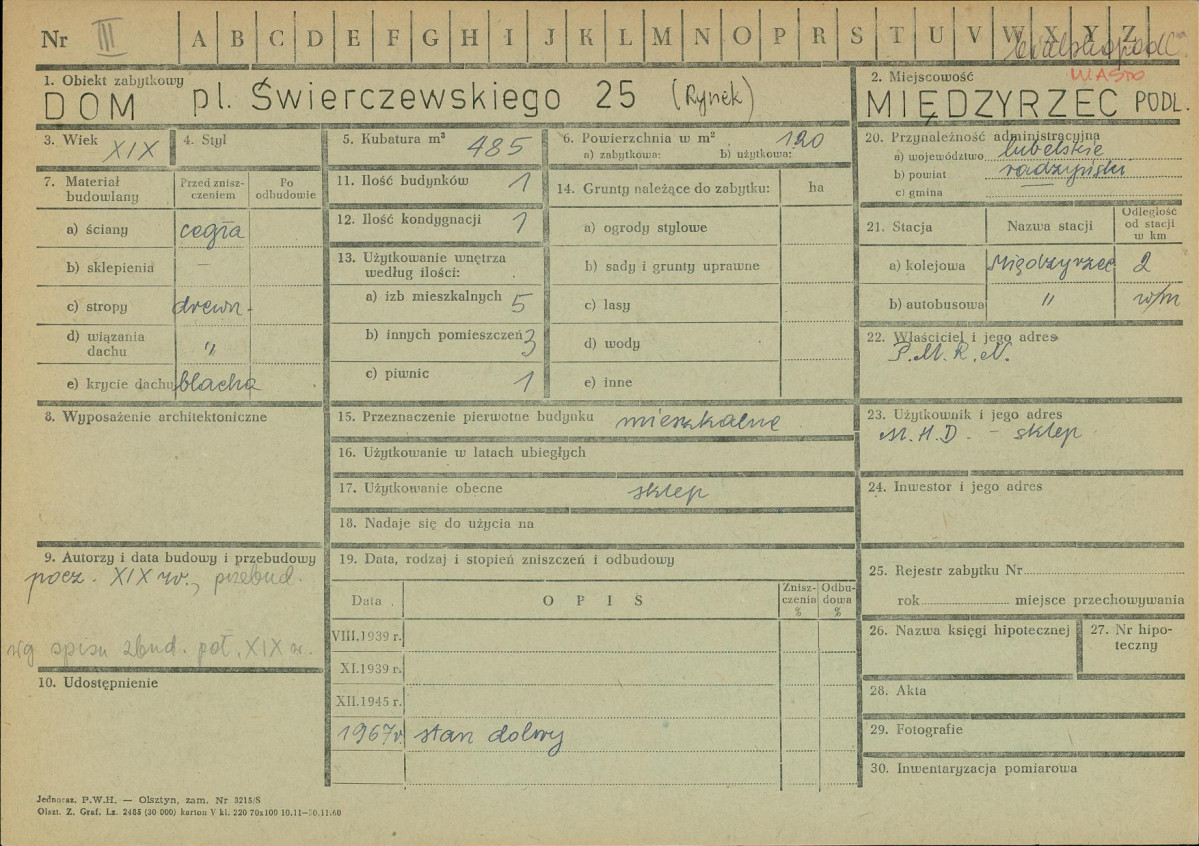 Nr III A B C D E F G H I J K L M N O P R S T U V W X Y Z
1. Obiekt zabytkowy
DOM pl. Świerczewskiego 25 (Rynek)
2. Miejscowość
MIASTO
MIĘDZYRZEC PODL.
3. Wiek XIX
4. Styl
5. Kubatura m³ 485
6. Powierzchnia w m² 120
a) zabytkowa: b) użytkowa:
20. Przynależność administracyjna
a) województwo lubelskie
b) powiat radzyński
c) gmina
7. Materiał budowlany
Przed znisz-
czeniem
Po
odbudowie
a) ściany cegła
b) sklepienia —
c) stropy drewn.
d) wiązania
dachu "
e) krycie dachu blacha
11. Ilość budynków 1
12. Ilość kondygnacji 1
13. Użytkowanie wnętrza
według ilości:
a) izb mieszkalnych 5
b) innych pomieszczeń 3
c) piwnic 1
14. Grunty należące do zabytku: ha
a) ogrody stylowe
b) sady i grunty uprawne
c) lasy
d) wody
e) inne
21. Stacja
Nazwa stacji
Odległość
od stacji
w km
a) kolejowa Międzyrzec 2
b) autobusowa " w/m
22. Właściciel i jego adres
P.M.R.N.
8. Wyposażenie architektoniczne
15. Przeznaczenie pierwotne budynku mieszkalne
16. Użytkowanie w latach ubiegłych
17. Użytkowanie obecne sklep
18. Nadaje się do użycia na
23. Użytkownik i jego adres
M.H.D. - sklep
24. Inwestor i jego adres
9. Autorzy i data budowy i przebudowy
pocz. XIX w., przebud.
wg spisu zbud. poł. XIX w.
10. Udostępnienie
19. Data, rodzaj i stopień zniszczeń i odbudowy
Data OPIS
Znisz-
czenia
%
Odbu-
dowa
%
VIII.1939 r.
XI.1939 r.
XII.1945 r.
1967r stan dobry
25. Rejestr zabytku Nr
rok miejsce przechowywania
26. Nazwa księgi hipotecznej
27. Nr hipo-
teczny
28. Akta
29. Fotografie
30. Inwentaryzacja pomiarowa
Jednoraz. P.W.H. — Olsztyn, zam. Nr 3215/S
Olszt. Z. Graf. Lz. 2485 (30 000) karton V kl. 220 70x100 10.11—30.11.60